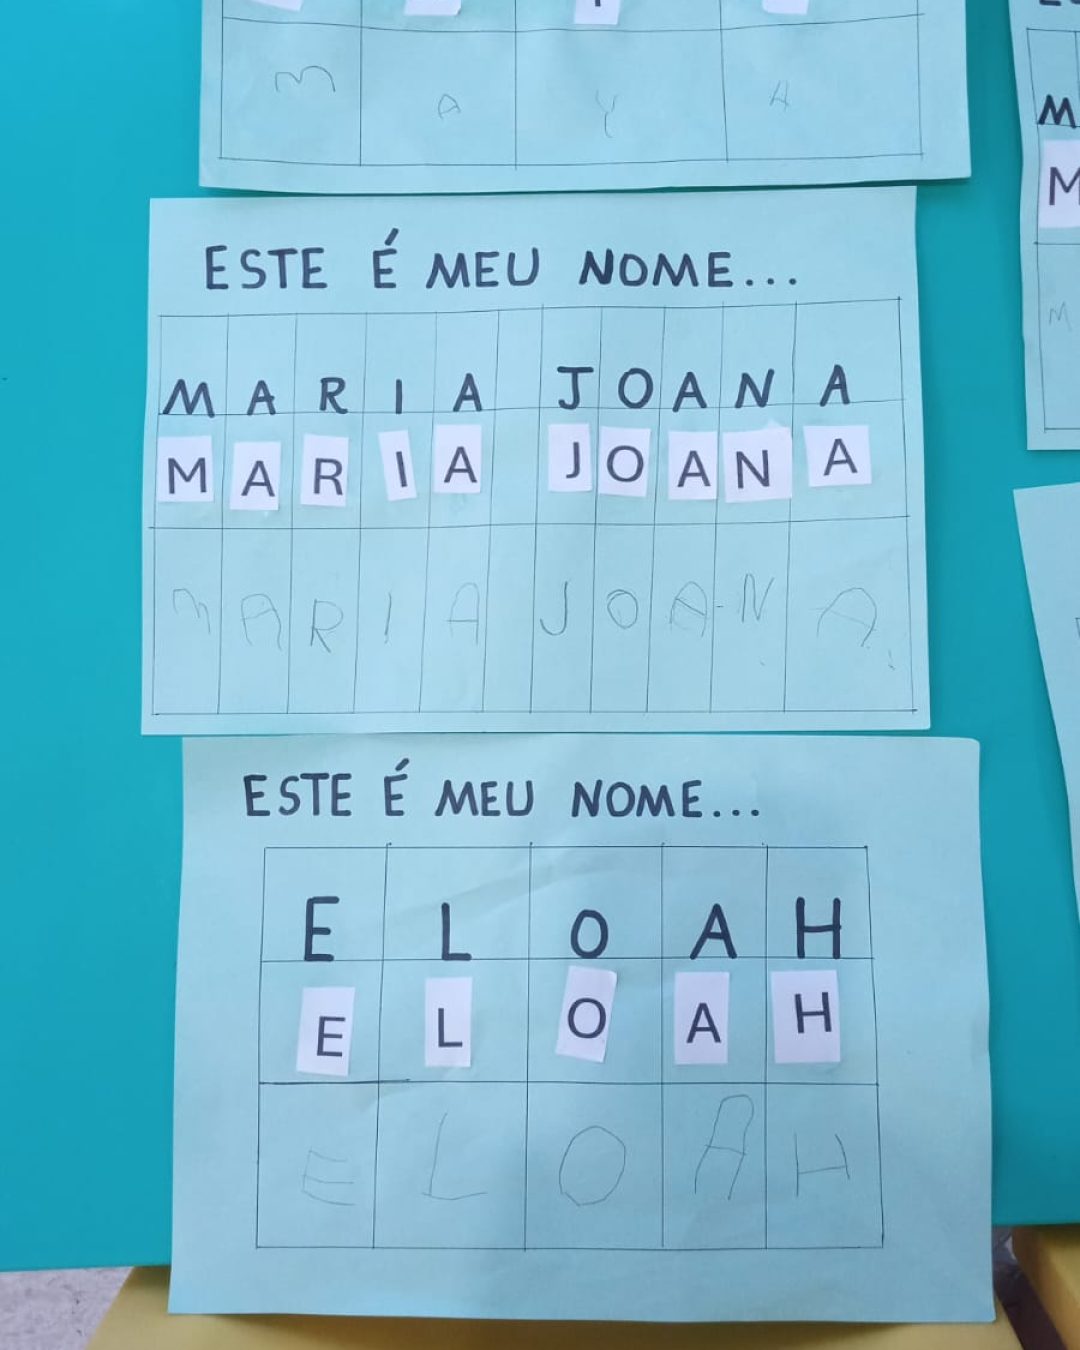 M A Y A
ESTE É MEU NOME...
M A R I A J O A N A
M A R I A J O A N A
M A R I A J O A N A
ESTE É MEU NOME...
E L O A H
E L O A H
E L O A H
M
M
M